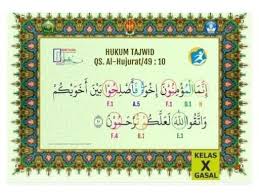 HUKUM TAJWID
QS. Al-Hujurat/49 : 10
إِنَّمَا الْمُؤْمِنُوْنَ إِخْوَةٌ فَأَصْلِحُوْا بَيْنَ أَخَوَيْكُمْ
F.1 A.5 F.1 A.1
وَاتَّقُوا اللّٰهَ لَعَلَّكُمْ تُرْحَمُوْنَ
F.4
KELAS
X
GASAL